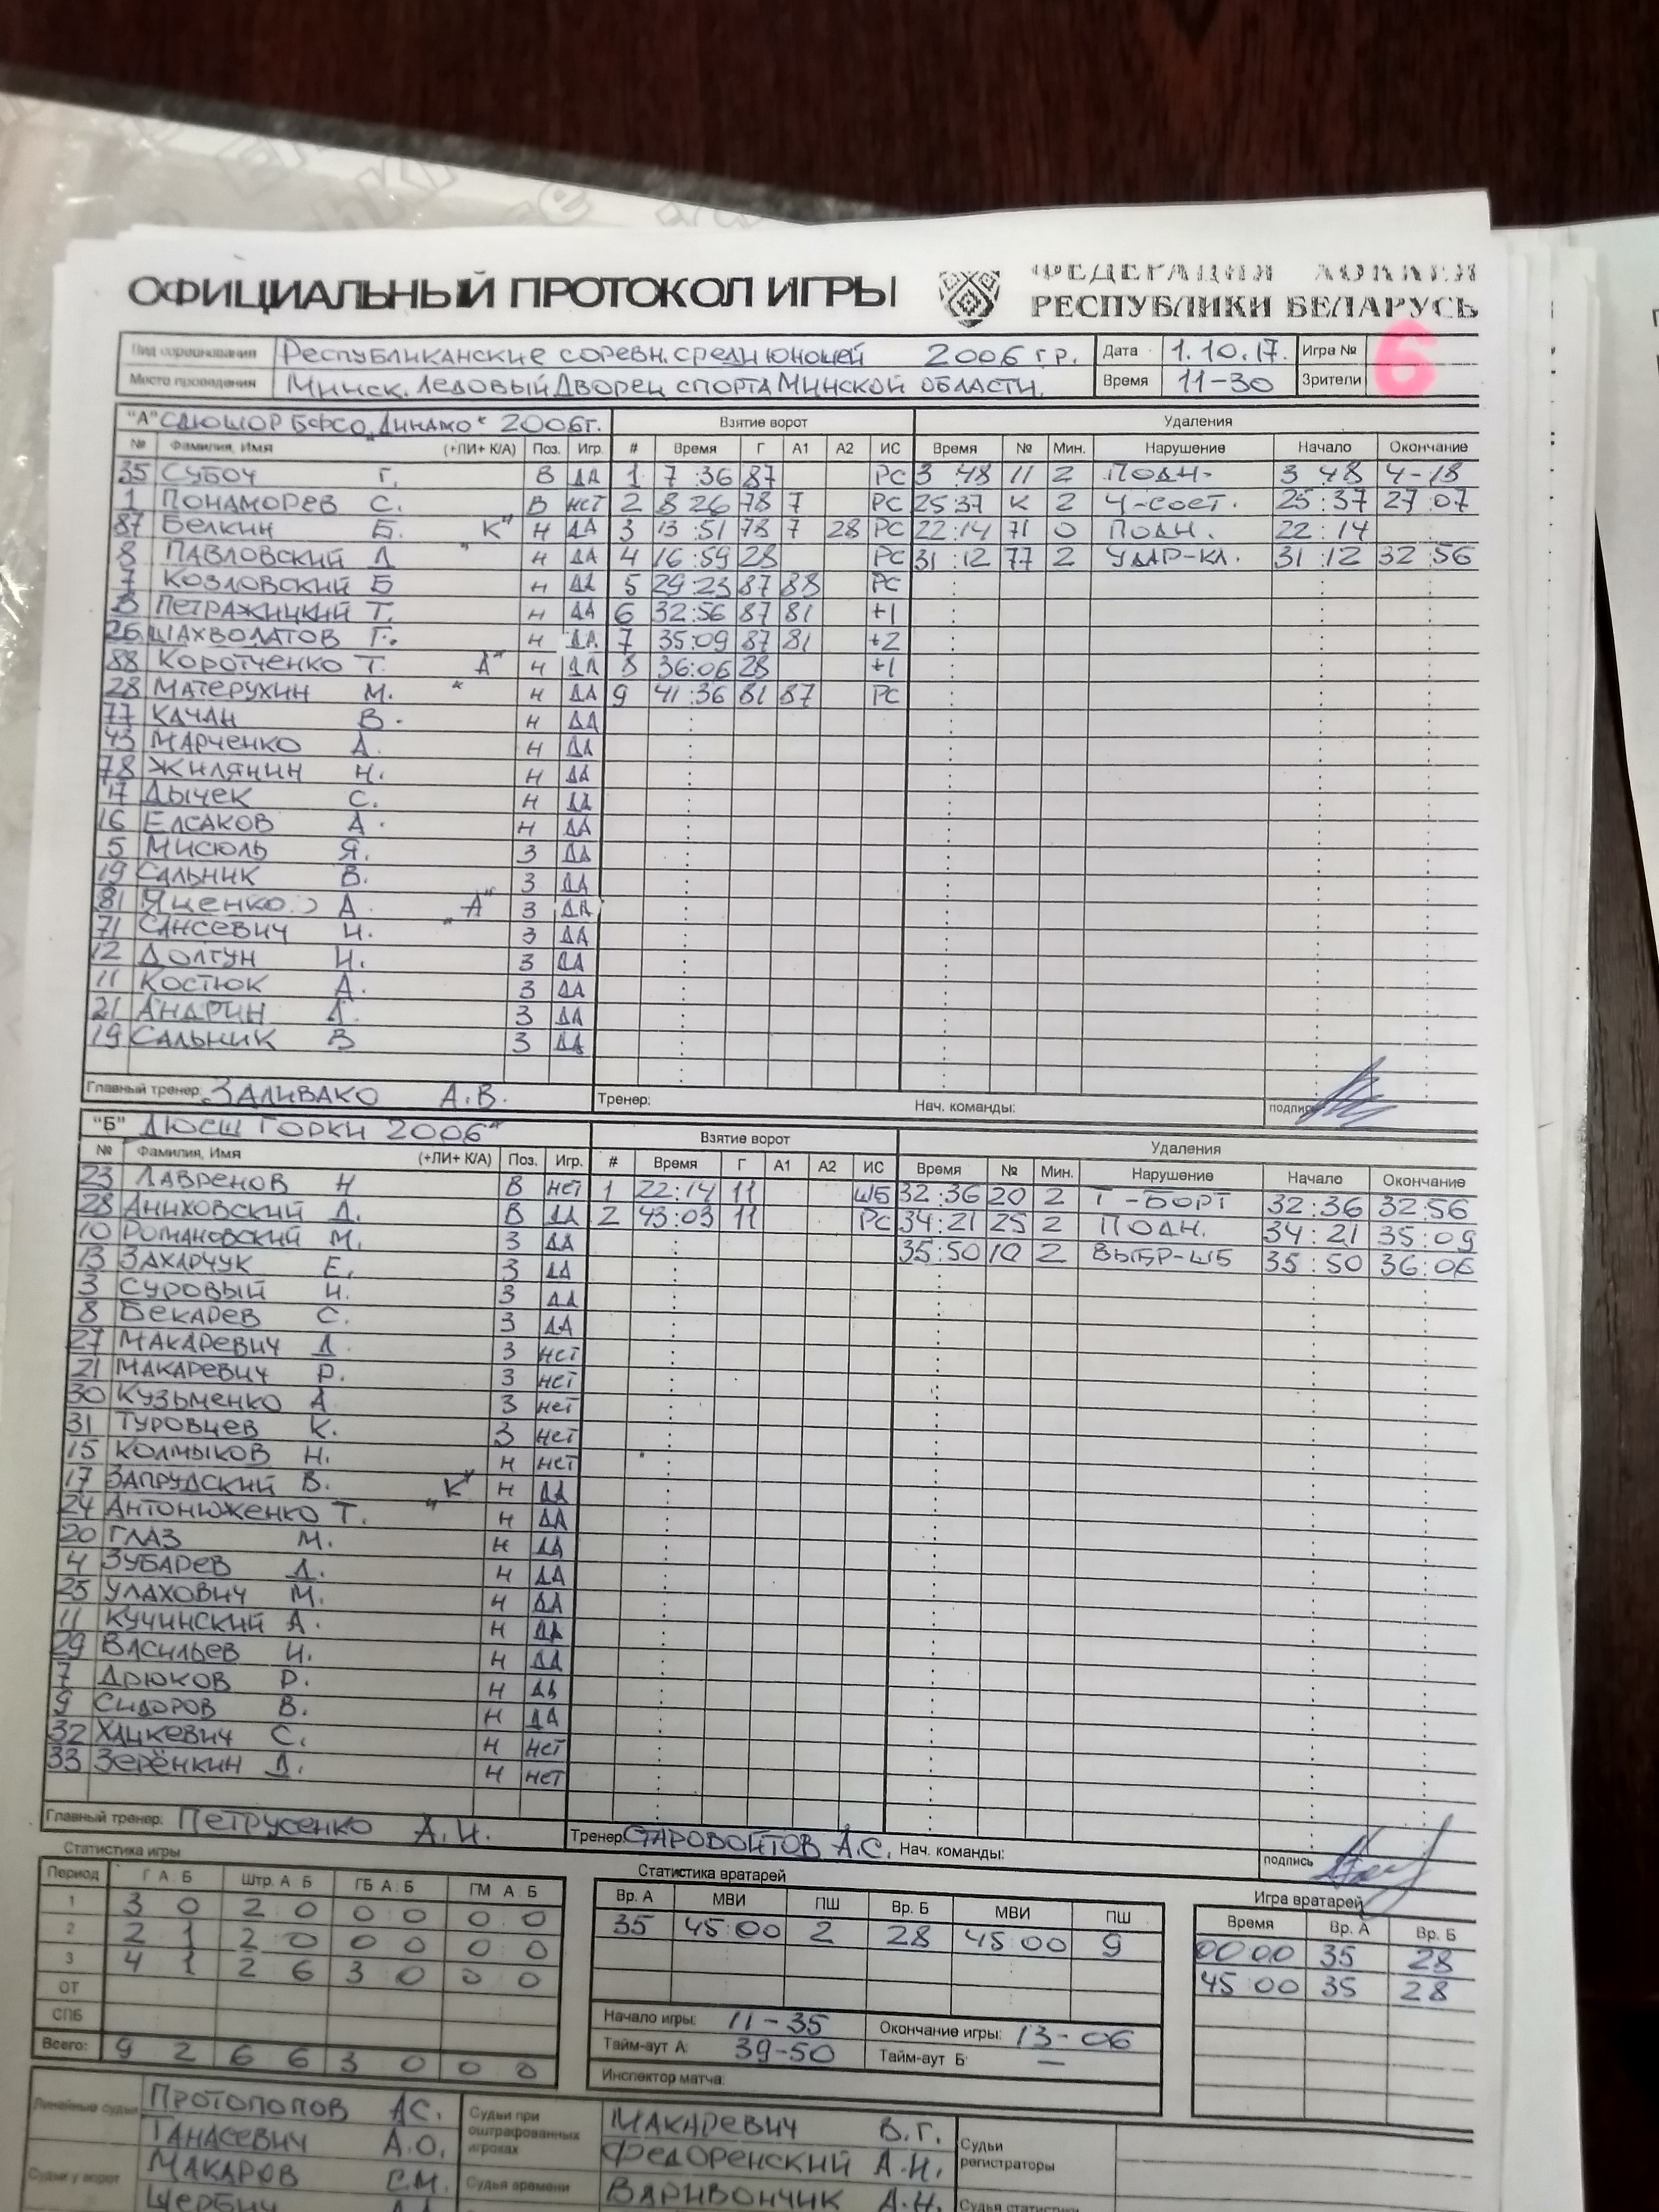 ОФИЦИАЛЬНЫЙ ПРОТОКОЛ ИГРЫ ФЕДЕРАЦИЯ ХОККЕЯ
РЕСПУБЛИКИ БЕЛАРУСЬ
Вид соревнования Республиканские соревн. среди юношей 2006 г.р. Дата 1.10.17. Игра № 6
Место проведения Минск. Ледовый Дворец спорта Минской области. Время 11-30 Зрители
"А" СДЮШОР БФСО „Динамо“ 2006г. Взятие ворот Удаления
№ Фамилия, Имя (+ЛИ+ К/А) Поз. Игр. # Время Г А1 А2 ИС Время № Мин. Нарушение Начало Окончание
35 Субоч Г. В ДА 1 7:36 87 РС 3:48 11 2 Подн- 3 48 4-18
1 Понаморев С. В нет 2 8 26 78 7 РС 25:37 К 2 Ч-сост. 25:37 27:07
87 Белкин Б. „К“ Н ДА 3 13:51 78 7 28 РС 22:14 71 0 Подн. 22:14
8 Павловский Д Н ДА 4 16:59 28 РС 31:12 77 2 Удар-кл. 31:12 32:56
7 Козловский Б Н ДА 5 29:23 87 88 РС
В Петражицкий Т. Н ДА 6 32:56 87 81 +1
26 Шахволатов Г. Н ДА 7 35:09 87 81 +2
88 Коротченко Т. „А“ Н ДА 8 36:06 28 +1
28 Матерухин М. Н ДА 9 41:36 81 87 РС
77 Качан В. Н ДА
43 Марченко А. Н ДА
78 Жилянин Н. Н ДА
17 Дычек С. Н ДА
16 Елсаков А. Н ДА
5 Мисюль Я. З ДА
19 Сальник В. З ДА
81 Яценко А „А“ З ДА
71 Сансевич И. З ДА
12 Долгун И. З ДА
11 Костюк А. З ДА
21 Андрин Д. З ДА
19 Сальник В З ДА
Главный тренер: Заливако А.В. Тренер: Нач. команды: подпись
"Б" ДЮСШ Горки 2006" Взятие ворот Удаления
№ Фамилия, Имя (+ЛИ+ К/А) Поз. Игр. # Время Г А1 А2 ИС Время № Мин. Нарушение Начало Окончание
23 Лавренов Н В нет 1 22:14 11 ШБ 32:36 20 2 Т-борт 32:36 32:56
28 Аниховский Д. В ДА 2 43:03 11 РС 34:21 25 2 Подн. 34:21 35:09
10 Романовский М. З ДА 35:50 10 2 Выбр-шб 35:50 36:06
13 Захарчук Е. З ДА
3 Суровый И. З ДА
8 Бекарев С. З ДА
27 Макаревич Д З нет
21 Макаревич Р. З нет
30 Кузьменко А З нет
31 Туровцев К. З нет
15 Колмыков Н. Н нет
17 Запрудский В. „К“ Н ДА
24 Антонюженко Т. Н ДА
20 Глаз М. Н ДА
4 Зубарев Д. Н ДА
25 Улахович М. Н ДА
11 Кучинский А. Н ДА
29 Васильев И. Н ДА
7 Дрюков Р. Н ДА
9 Сидоров В. Н ДА
32 Хацкевич С. Н нет
33 Зерёнкин Д. Н нет
Главный тренер: Петрусенко А.И. Тренер: Старовойтов А.С. Нач. команды: подпись
Статистика игры Статистика вратарей Игра вратарей
Период Г А Б Штр. А Б ГБ А Б ГМ А Б Вр. А МВИ ПШ Вр. Б МВИ ПШ Время Вр. А Вр. Б
1 3 0 2 0 0 0 0 0 35 45:00 2 28 45 00 9 00 00 35 28
2 2 1 2 0 0 0 0 0 45 00 35 28
3 4 1 2 6 3 0 0 0
ОТ
СПБ Начало игры: 11-35 Окончание игры: 13-06
Всего: 9 2 6 6 3 0 0 0 Тайм-аут А: 39-50 Тайм-аут Б: —
Инспектор матча:
Линейные судьи Протопопов А.С. Судьи при оштрафованных игроках Макаревич В.Г. Судьи регистраторы
Танасевич А.О. Федоренский А.Н.
Судьи у ворот Макаров С.М. Судья времени Варивончик А.Н. Судья статистики
Щербич